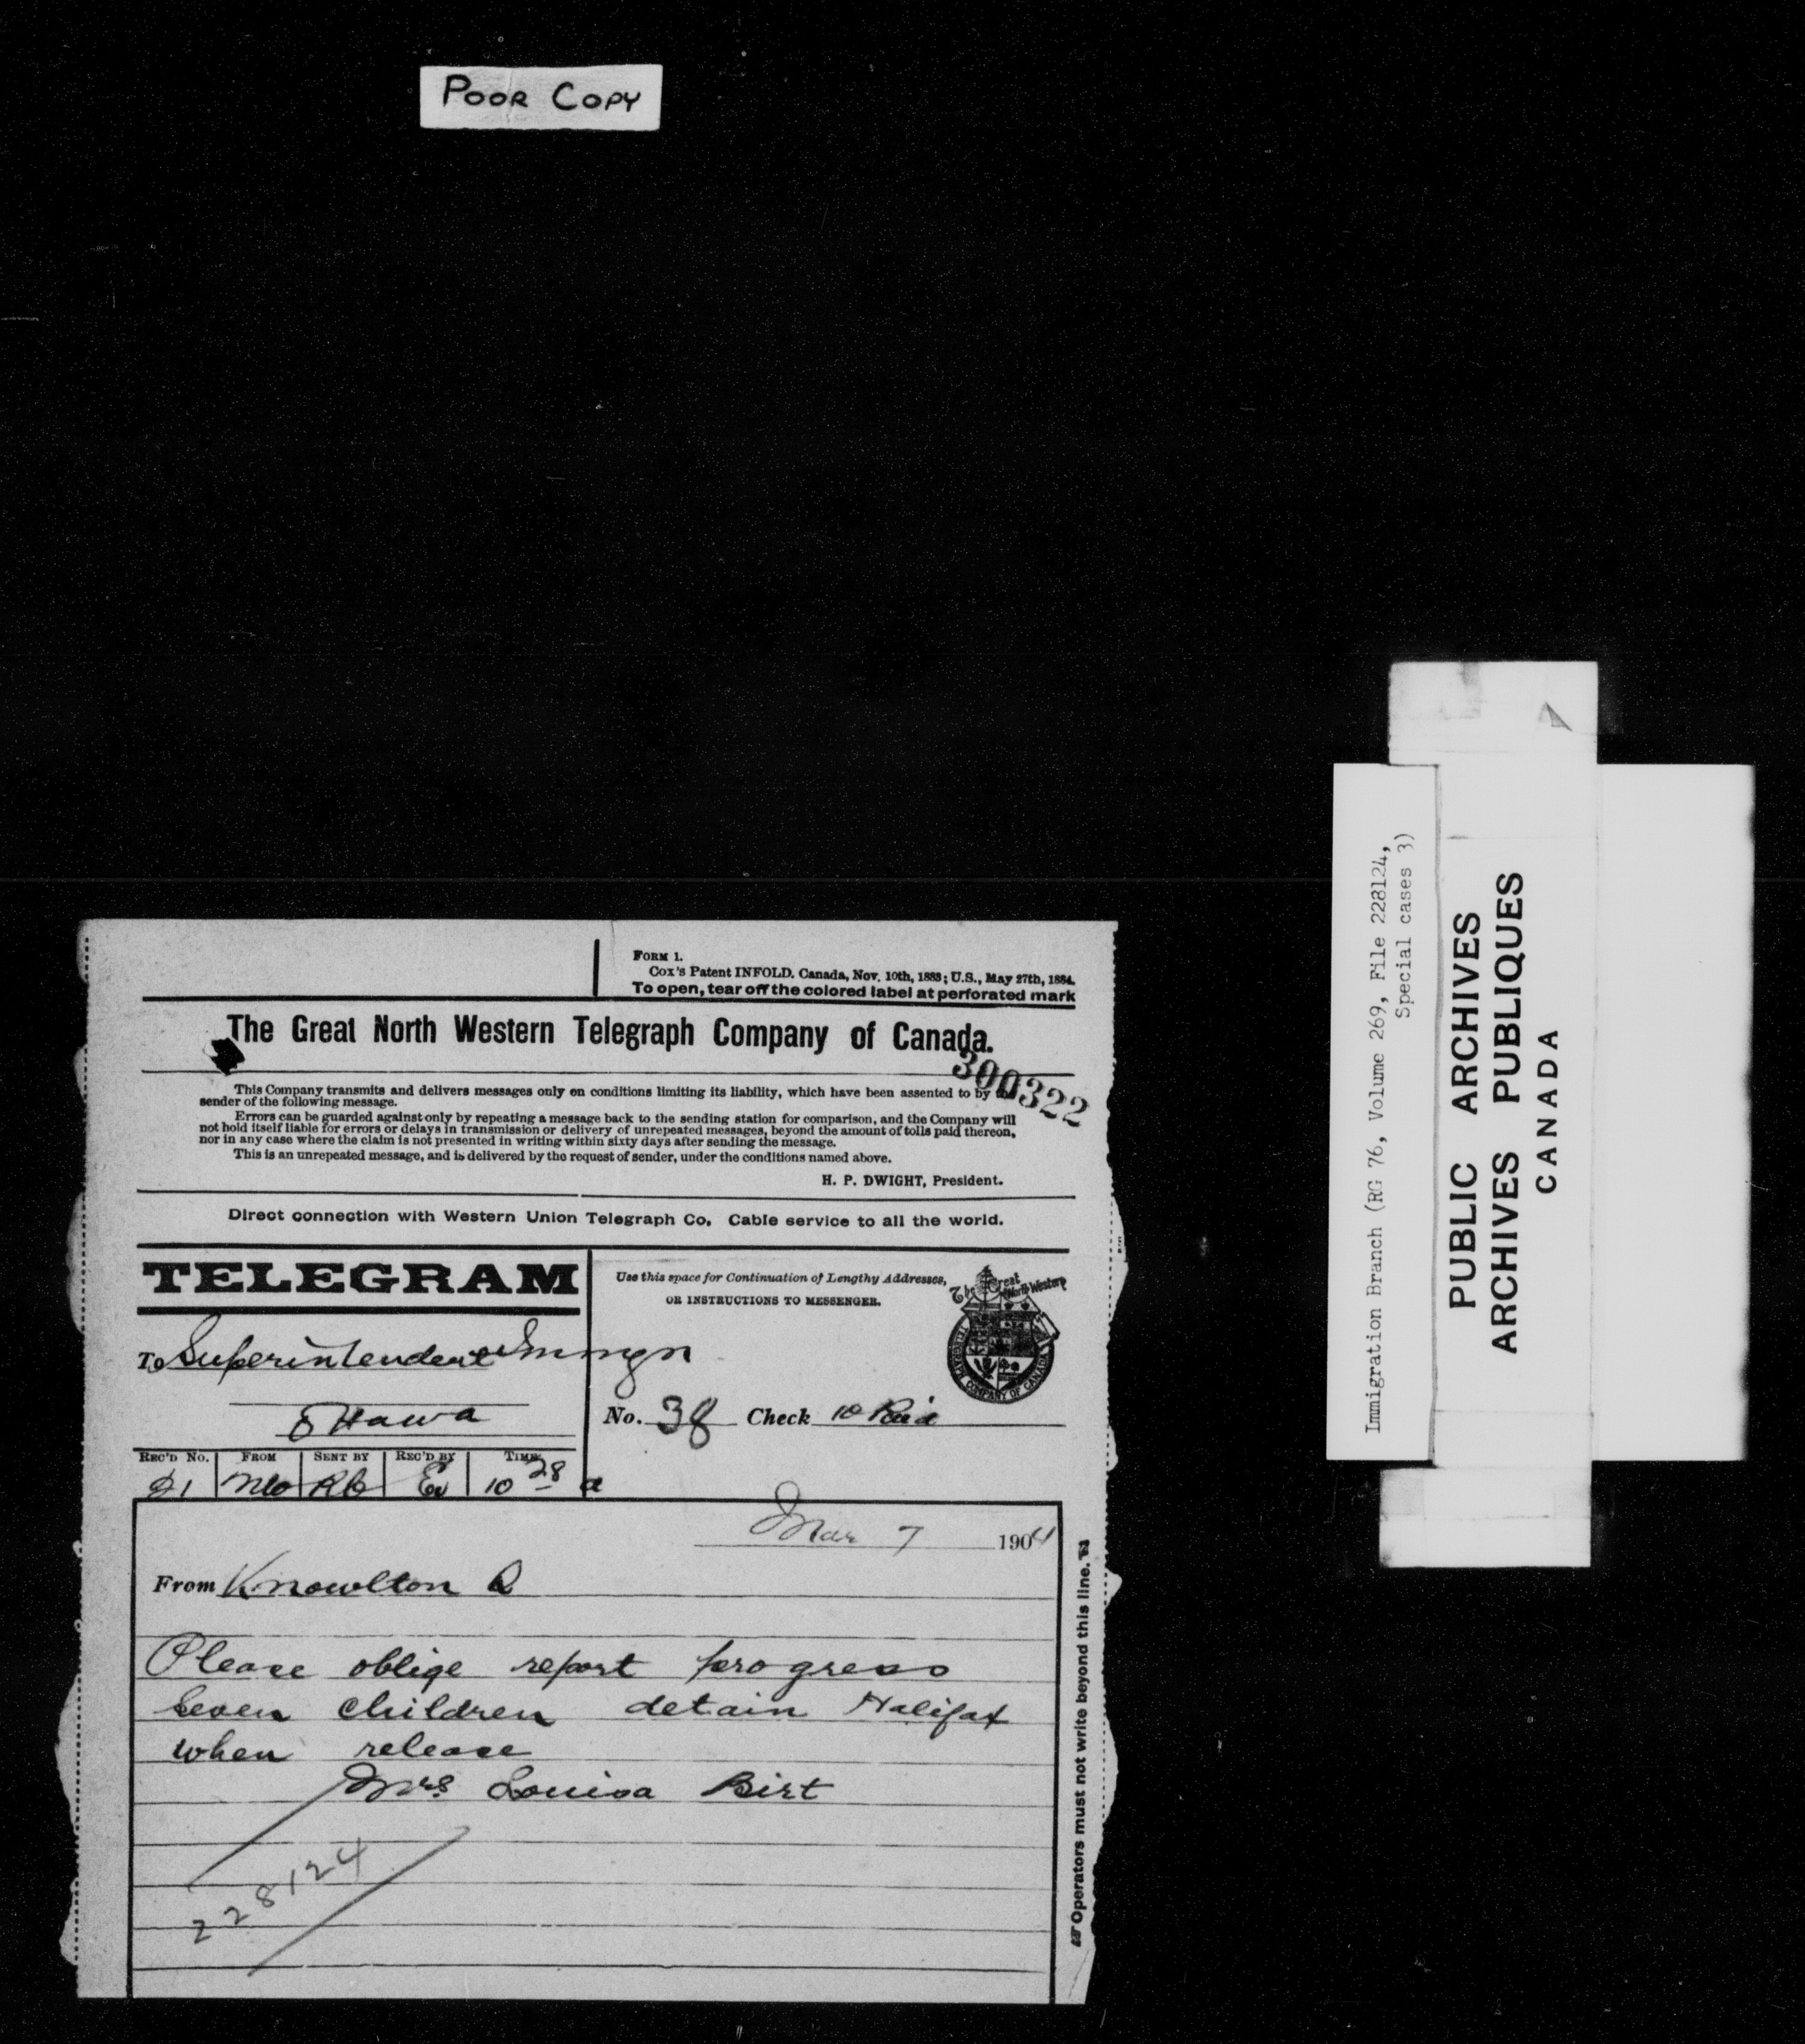 POOR COPY
FORM 1.
Cox's Patent INFOLD. Canada, Nov. 10th, 1883; U.S., May 27th, 1884.
To open, tear off the colored label at perforated mark
The Great North Western Telegraph Company of Canada.
300322
This Company transmits and delivers messages only on conditions limiting its liability, which have been assented to by the
sender of the following message.
Errors can be guarded against only by repeating a message back to the sending station for comparison, and the Company will
not hold itself liable for errors or delays in transmission or delivery of unrepeated messages, beyond the amount of tolls paid thereon,
nor in any case where the claim is not presented in writing within sixty days after sending the message.
This is an unrepeated message, and is delivered by the request of sender, under the conditions named above.
H. P. DWIGHT, President.
Direct connection with Western Union Telegraph Co. Cable service to all the world.
TELEGRAM
Use this space for Continuation of Lengthy Addresses,
OR INSTRUCTIONS TO MESSENGER.
The Great North Western
TELEGRAPH COMPANY OF CANADA
To Superintendent Immgn
Ottawa
No. 38 Check 10 Paid
REC'D No. FROM SENT BY REC'D BY TIME
21 Mo Rb 10 28 a
Mar 7 1904
From Knowlton Q
Please oblige report progress
seven children detain Halifax
when release
Mrs Louisa Birt
228124
Operators must not write beyond this line.
Immigration Branch (RG 76, Volume 269, File 228124,
Special cases 3)
PUBLIC ARCHIVES
ARCHIVES PUBLIQUES
CANADA